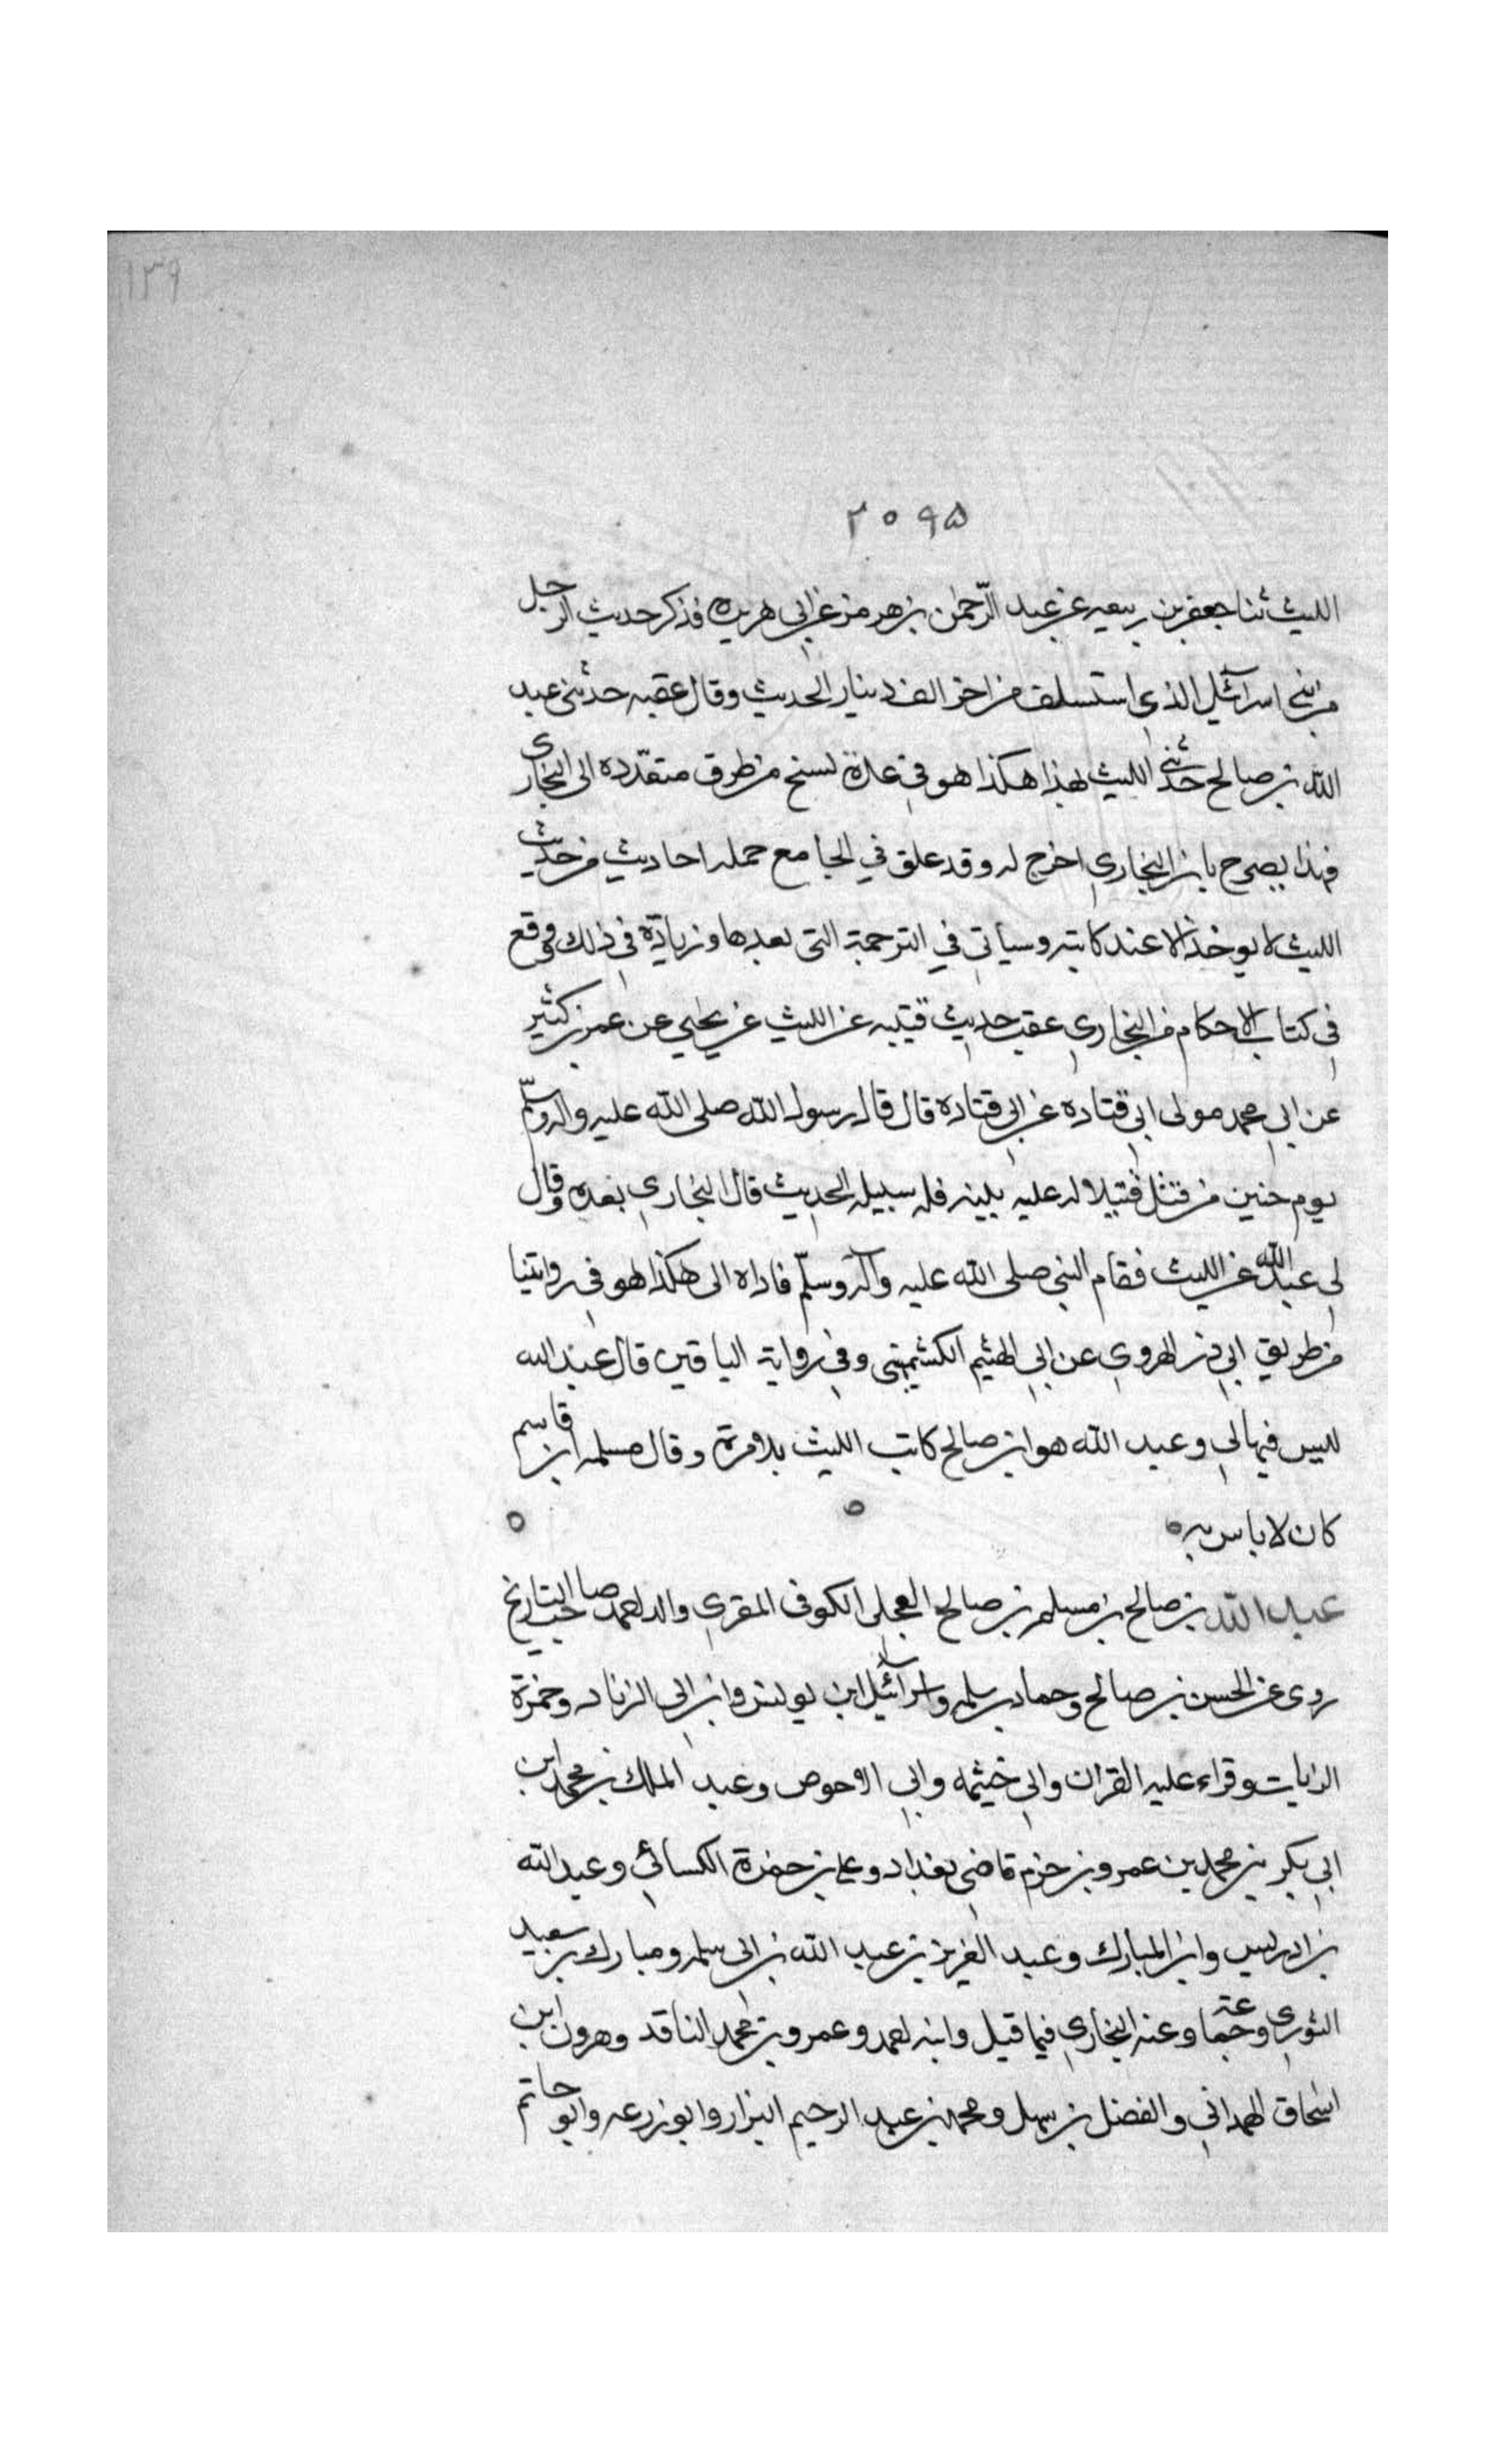 ١٣٩
٢٠٩٥
الليث ثنا جعفر بن ربيعه عن عبد الرّحمٰن بن هرمز عن ابي هريره فذكر حديث الرجل
من بني اسرآئيل الذي استسلف من اخر الف دينار الحديث وقال عقبه حدثني عبد
الله بن صالح حدثني الليث بهذا هكذا هو في عدة نسخ من طرق متعدّده الى البخاري
فهذا يصرح بان البخاري اخرج له وقد علق في الجامع جمله احاديث من حديث
الليث لا يوخذ الا عند كاتبه وسياتي في الترجمة التى بعدها وزيادة في ذلك ووقع
في كتاب الاحكام من البخاري عقب حديث قتيبه عن الليث عن يحيي عن عمر بن كثير
عن ابي محمد مولى ابي قتاده عن ابي قتاده قال قال رسول الله صلى الله عليه واله وسلّم
يوم حنين من قتل قتيلا له عليه بينه فله سبيله الحديث قال البخاري بعده وقال
لي عبد الله عن الليث فقام النبي صلى الله عليه وآله وسلّم فاداه الى هكذا هو في روايتنا
من طريق ابي ذر الهروي عن ابي الهثيم الكشميهني وفي رواية الباقين قال عبد الله
ليس فيها لي وعبد الله هو ابن صالح كاتب الليث بلا مرة وقال مسلمه ابن قاسم
كان لا باس به
عبد الله بن صالح بن مسلم بن صالح العجلي الكوفى المقري والد احمد صاحب التاريخ
روى عن الحسن بن صالح وحماد بن سلمه واسرآئيل ابن يونس وابن ابي الزناد وحمزة
الزيات وقراء عليه القران وابي خيثمه وابي الاحوص وعبد الملك بن محمد ابن
ابي بكر بن محمد بن عمرو بن حزم قاضي بغداد وعلي بن حمزة الكسائي وعبد الله
بن ادريس وابن المبارك وعبد العزيز بن عبد الله بن ابي سلمه ومبارك بن سعيد
الثوري وجماعة وعنه البخاري فيما قيل وابنه احمد وعمرو بن محمد الناقد وهرون ابن
اسحاق الهمداني والفضل بن سهل ومحمد بن عبد الرحيم البزار وابو زرعه وابو حاتم